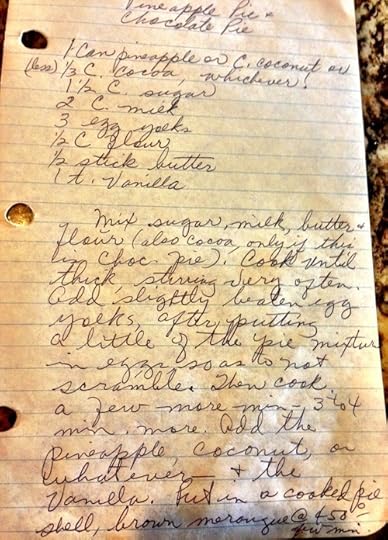 Pineapple Pie &
Chocolate Pie
1 Can pineapple or C. coconut or
(less) 1/3 C. cocoa, whichever!
1 1/2 C. sugar
2 C. milk
3 egg yolks
1/2 C flour
1/2 stick butter
1 t. Vanilla
Mix sugar, milk, butter &
flour (also cocoa, only if this
is Choc. Pie). Cook until
thick, stirring very often.
Add slightly beaten egg
yolks, after putting
a little of the pie mixture
in eggs so as to not
scramble. Then cook
a few more min. 3 to 4
min. more. Add the
Pineapple, coconut, or
whatever & the
Vanilla. Put in a cooked pie
shell, brown merangue @ 450°
few min.